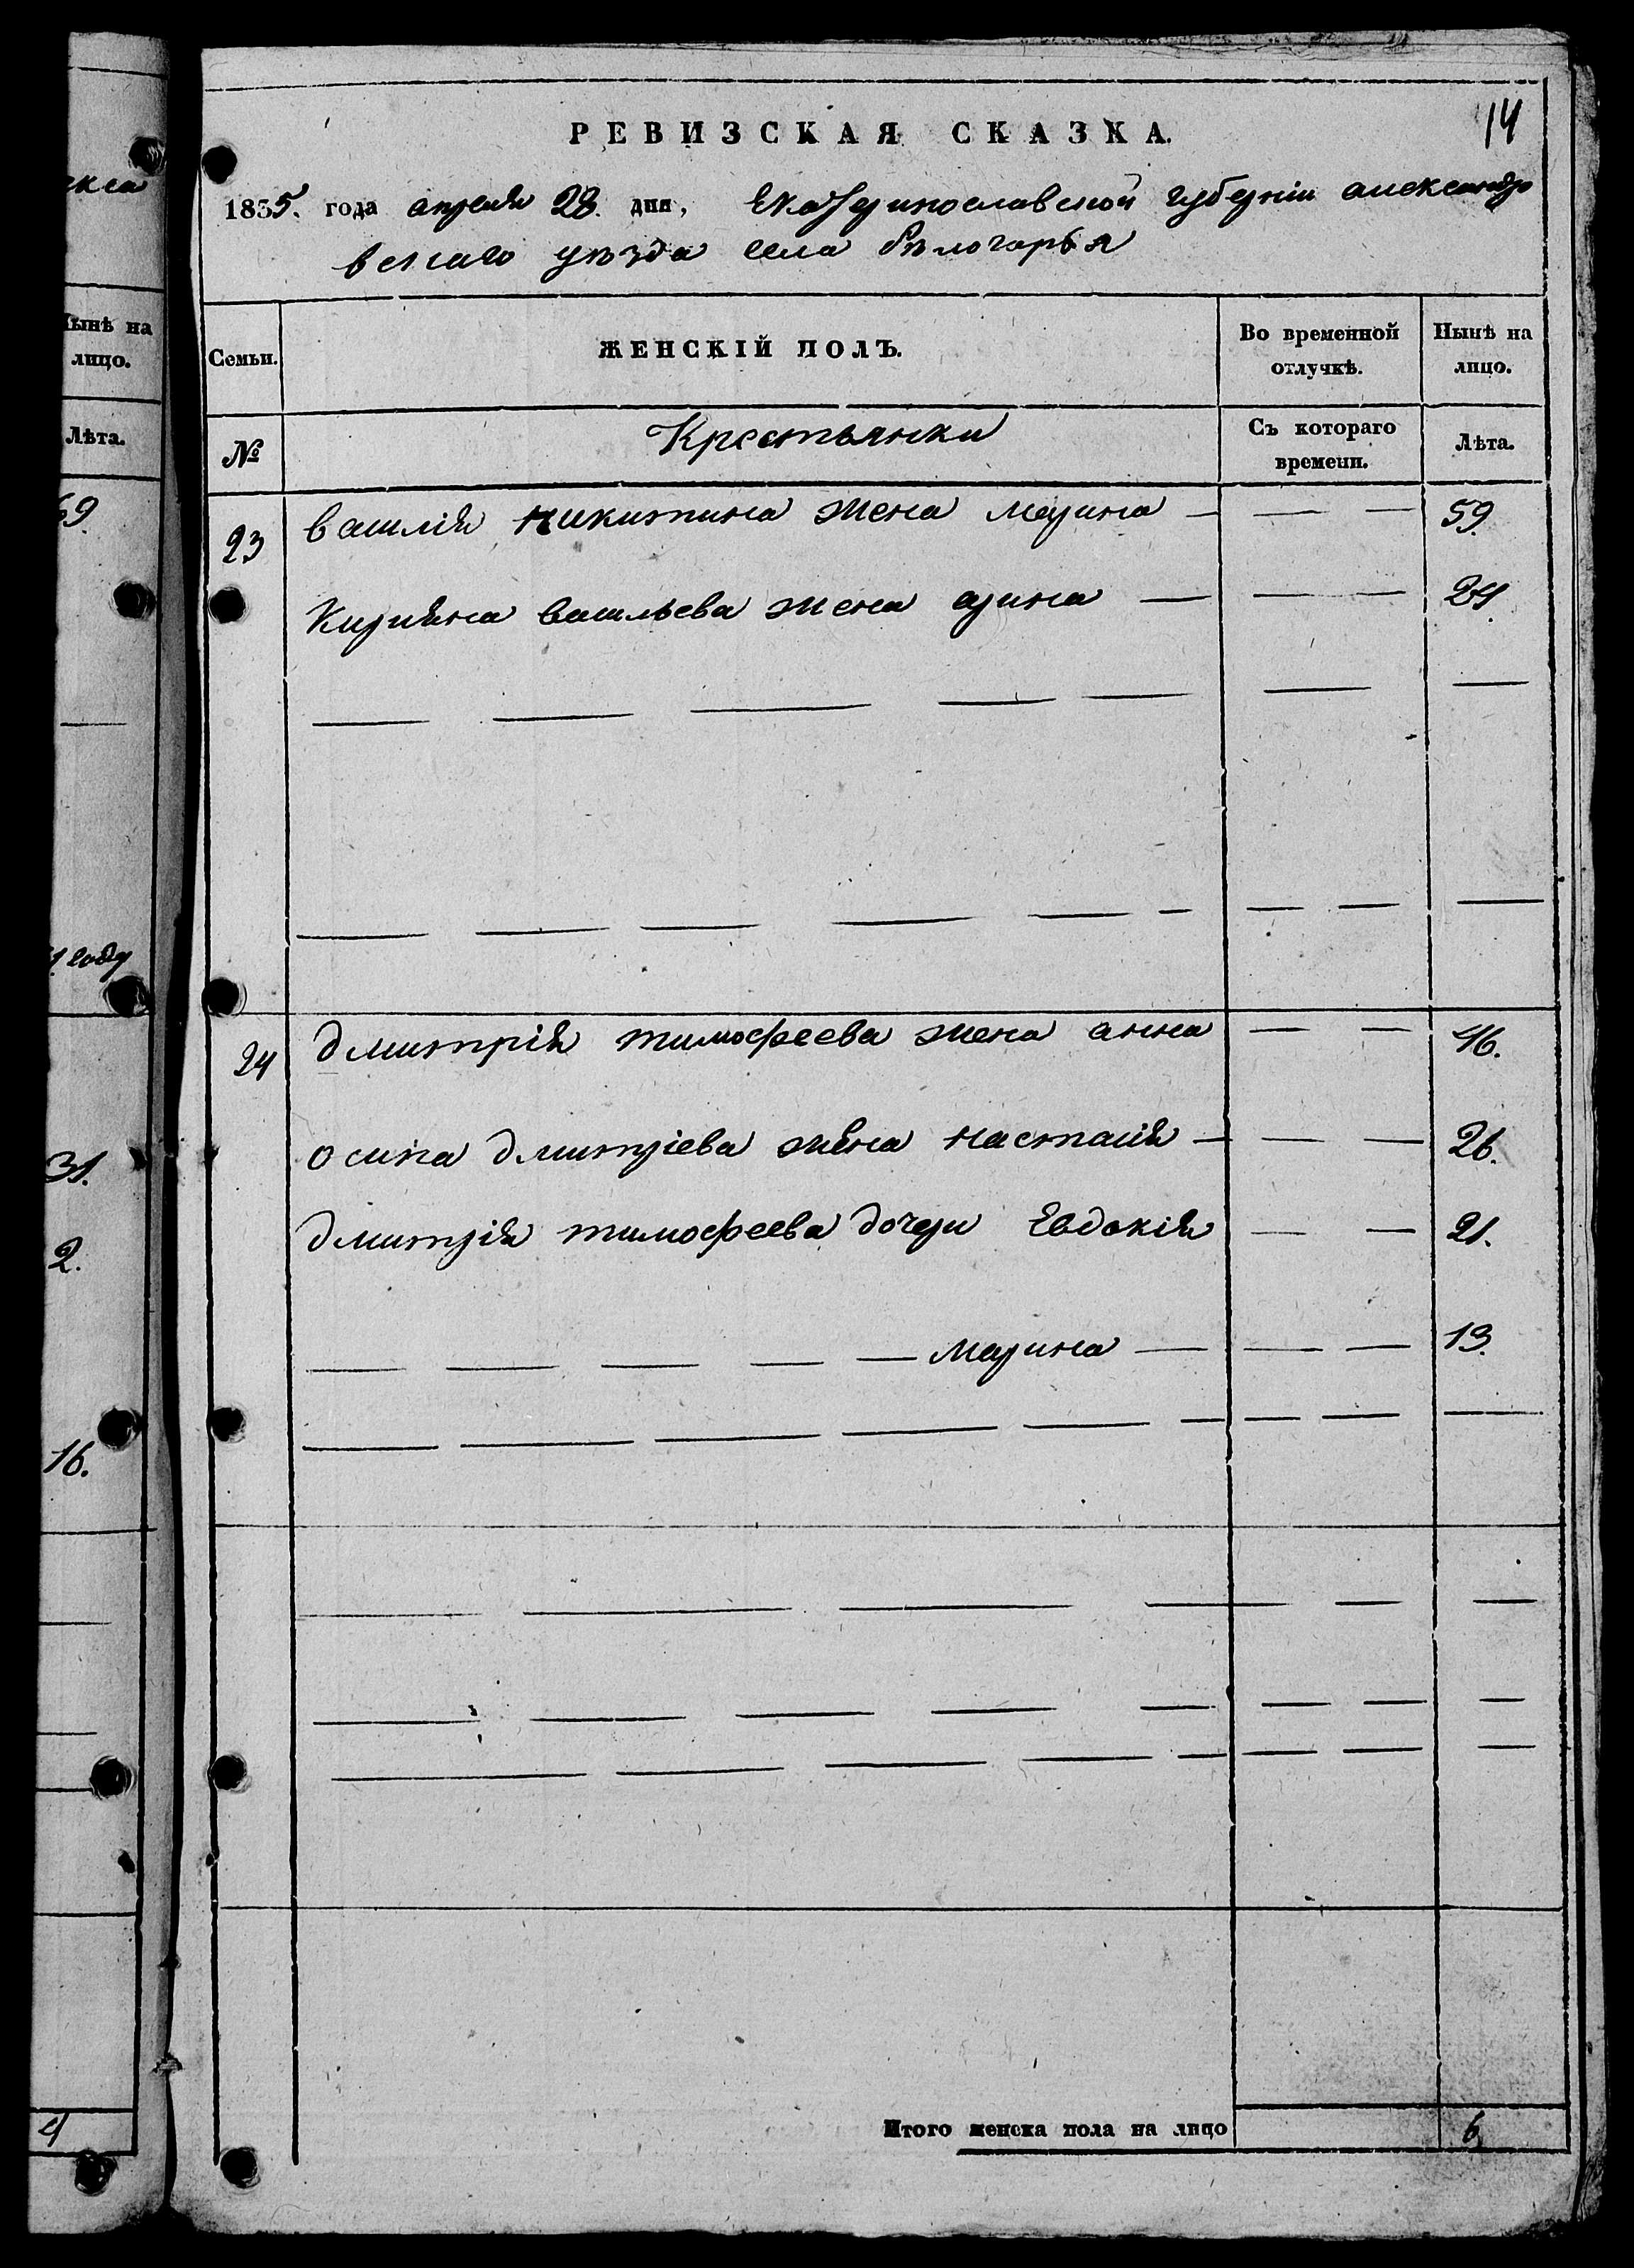 екса
Нынѣ на
лицо.
Лѣта.
69
году
31.
2.
16.
4
14
РЕВИЗСКАЯ СКАЗКА.
1835. года апреля 28. дня, Екатеринославской губерніи александро
вскаго уѣзда села бѣлогорья
Семьи. ЖЕНСКІЙ ПОЛЪ. Во временной отлучкѣ. Нынѣ на лицо.
№ Крестьянки Съ котораго времени. Лѣта.
23 василія никитина жена марина — — — 59.
Кирияна васильева жена арина — — — 24.
24 дмитрія тимофеева жена анна — — 46.
осипа дмитріева жена настасія — — — 26.
дмитрія тимофеева дочери Евдокія — — 21.
— — — — — марина — — — 13.
Итого женска пола на лицо 6